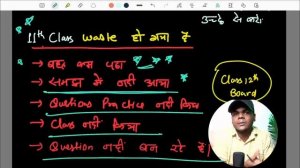 उन्हें दे सके।
11th Class waste हो गया है
→ बहुत कम पढ़ा
→ समझ में नहीं आया
→ Questions Practice नहीं किया
→ Class नहीं किया
→ Question नहीं बन रहे हैं।
Class 12th
Board